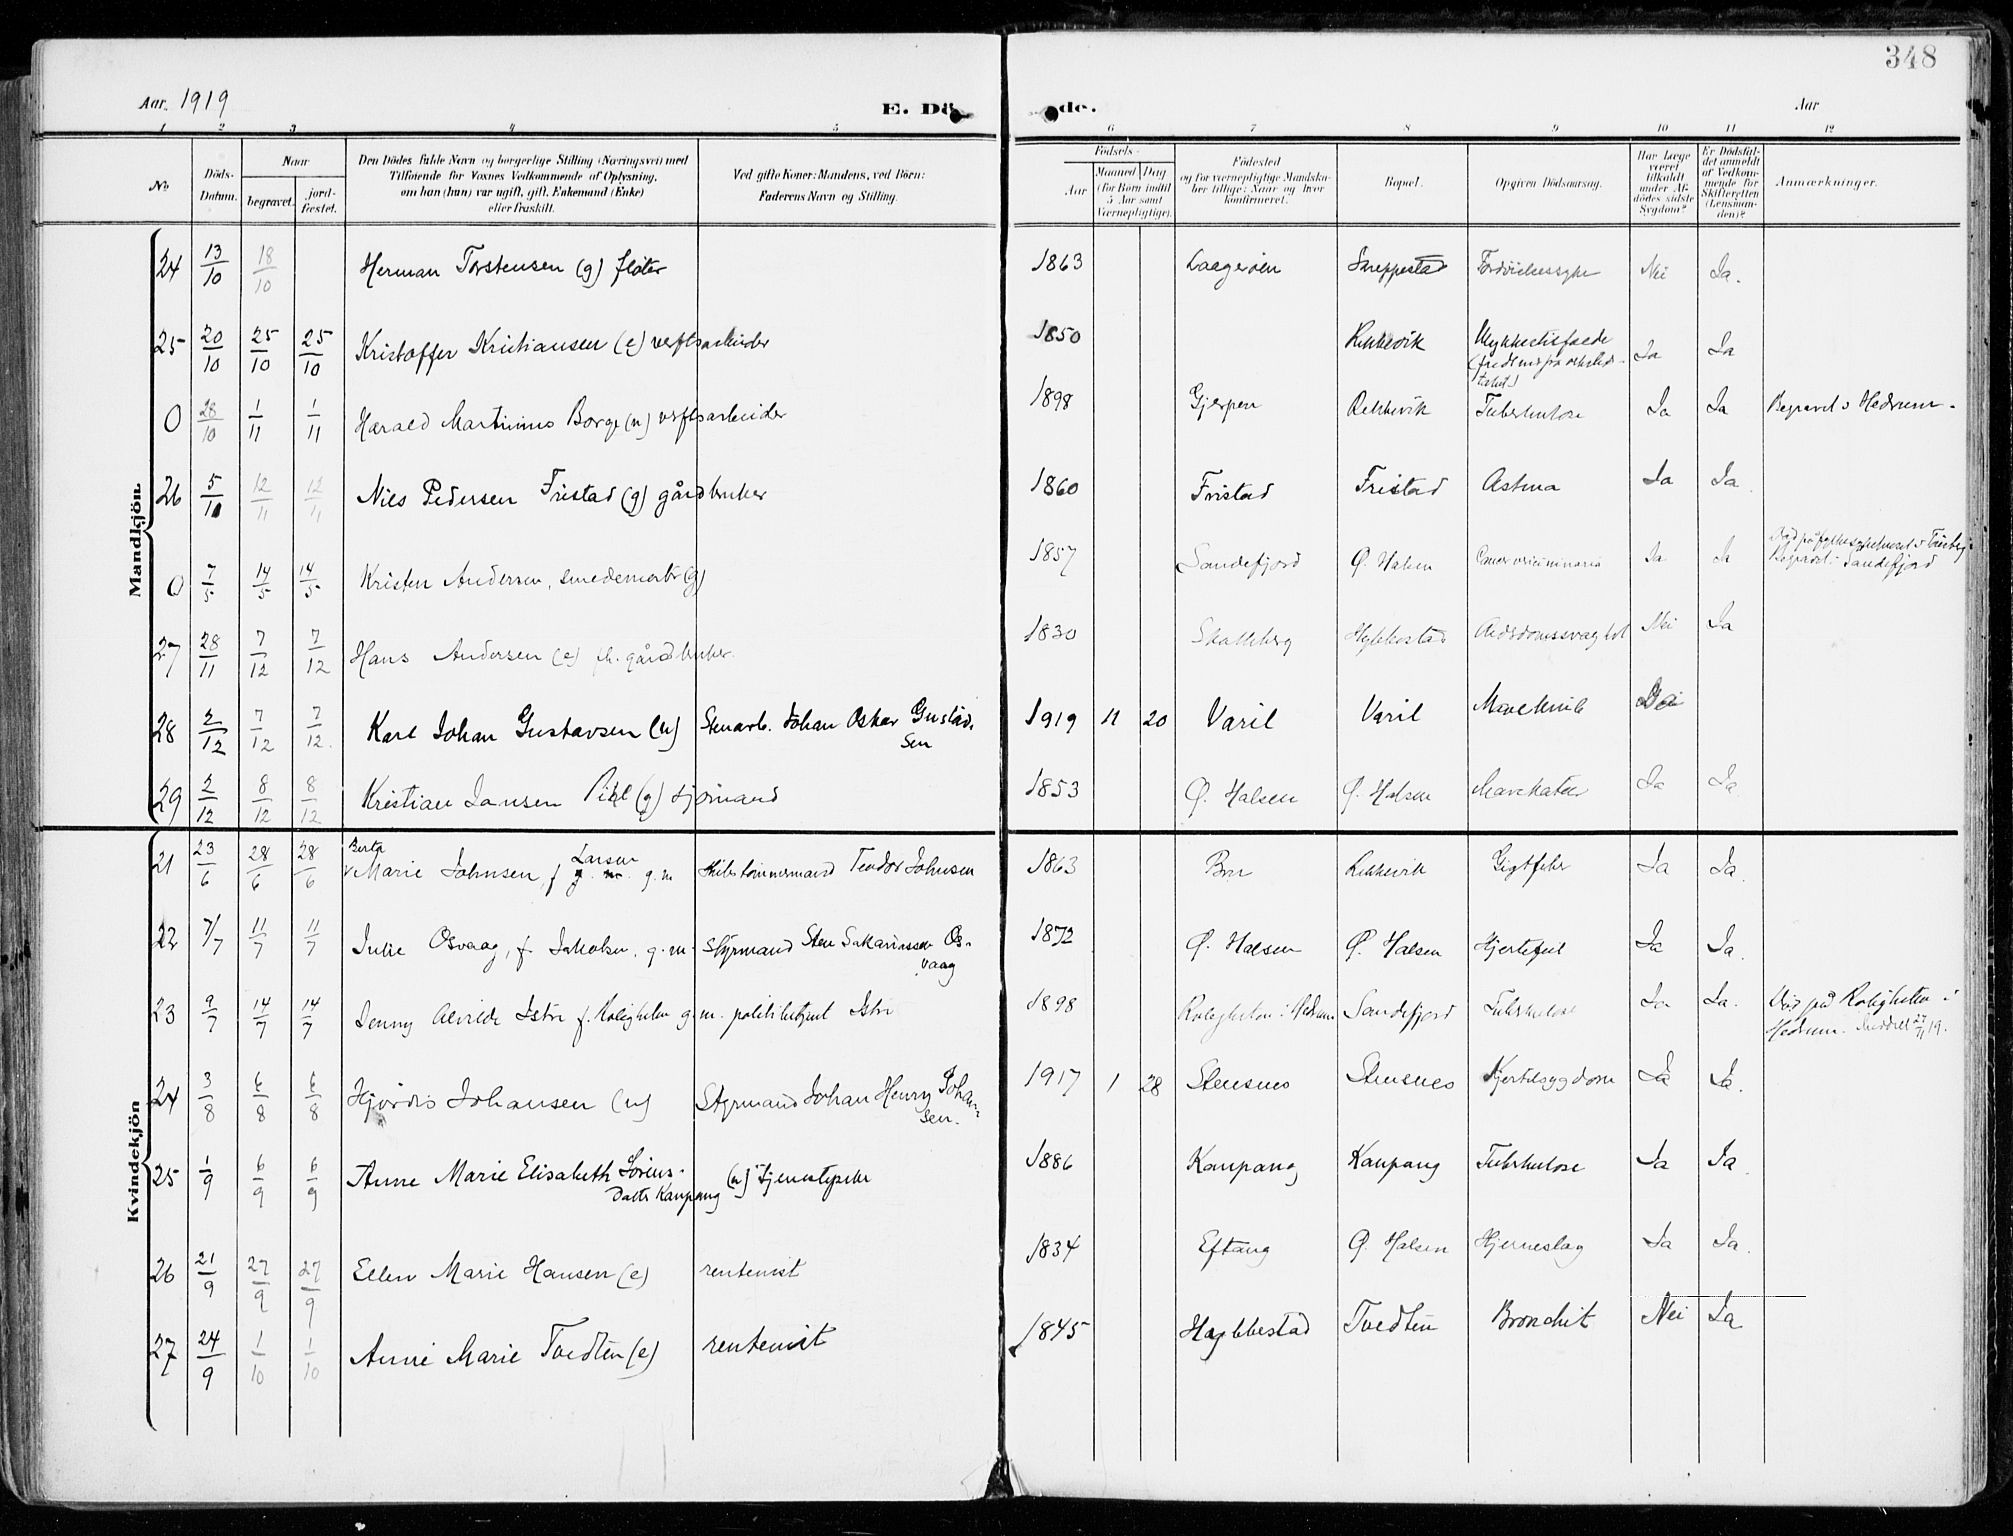 348
Aar. 1919 E. Dö de. Aar
1 2 3 4 5 6 7 8 9 10 11 12
No
Döds-Datum.
Naar
begravet.
jord-fæstet.
Den Dödes fulde Navn og borgerlige Stilling (Næringsvei) med
Tilföiende for Voxnes Vedkommende af Oplysning,
om han (hun) var ugift, gift, Enkemand (Enke)
eller fraskilt.
Ved gifte Koner: Mandens, ved Börn:
Faderens Navn og Stilling.
Födsels-
Aar
Maaned Dag
(for Börn indtil
5 Aar samt
Værnepligtige).
Födested
og for værnepligtige Mandska-
ber tillige: Naar og hvor
konfirmeret.
Bopæl.
Opgiven Dödsaarsag.
Har Læge
været
tilkaldt
under Af-
dödes sidste
Sygdom?
Er Dödsfal-
det anmeldt
af Vedkom-
mende for
Skifteretten
(Lensman-
den)?
Anmærkninger.
Mandkjön.
24 13/10 18/10 Herman Torstensen (g) fløter 1863 Laagerøen Nei Ja.
25 20/10 25/10 25/10 Kristoffer Kristiansen (e) verftsarbeider 1850 Rekkevik Ulykkestilfælde Ja Ja
0 28/10 1/11 1/11 Harald Martinius Borge (u) verftsarbeider 1898 Gjerpen Rekkevik Tuberkulose Ja Ja Begravet i Hedrum.
26 5/11 12/11 12/11 Nils Pedersen Fristad (g) gårdbruker 1860 Fristad Fristad Astma Ja Ja.
0 7/5 14/5 14/5 Kristen Andersen, smedemester (g) 1857 Sandefjord Ø. Halsen Ja Ja
Begravet i Sandefjord
27 28/11 7/12 7/12 Hans Andersen (e) fh. gårdbruker. 1830 Skalleberg Alderdomssvaghet Nei Ja
28 2/12 7/12 7/12. Karl Johan Gustavsen (u) Stenarb. Johan Oskar Gustav-
sen 1919 11 20 Varil Varil Maveknib Nei
29 2/12 8/12 8/12 Kristian Jansen Pihl (g) sjømand 1853 Ø. Halsen Ø. Halsen Mavekatar Ja Ja.
Kvindekjön
21 23/6 28/6 28/6 Berta
Marie Johnsen, f Larsen g. m Skibstømmermand Teodor Johnsen 1863 Rekkevik Gigtfeber Ja Ja.
22 7/7 11/7 11/7 Julie Osvaag, f. Jakobsen, g. m. styrmand Sten Sakariassen Os-
vaag 1872 Ø. Halsen Ø. Halsen Hjertefeil Ja Ja.
23 9/7 14/7 14/7 Jenny Alvilde Istre f. Roligheten g. m. politibetjent Istre 1898 Roligheten i Hedrum Sandefjord Tuberkulose Ja Ja. Død på Roligheten i
Hedrum. Meddelt 27/11 19.
24 3/8 6/8 6/8 Hjørdis Johansen (u) Styrmand Johan Henry Johan-
sen. 1917 1 28 Stensnes Stensnes Hjertesygdom Ja Ja.
25 1/9 6/9 6/9 Anne Marie Elisabeth Sørens-
datter Kaupang (u) tjenestepike 1886 Kaupang Kaupang Tuberkulose Ja Ja.
26 21/9 27/9 27/9 Ellen Marie Hansen (e) rentenist 1834 Eftang Ø. Halsen Hjerneslag Ja Ja.
27 24/9 1/10 1/10 Anne Marie Tvedten (e) rentenist 1845 Tvedten Bronchit Nei Ja